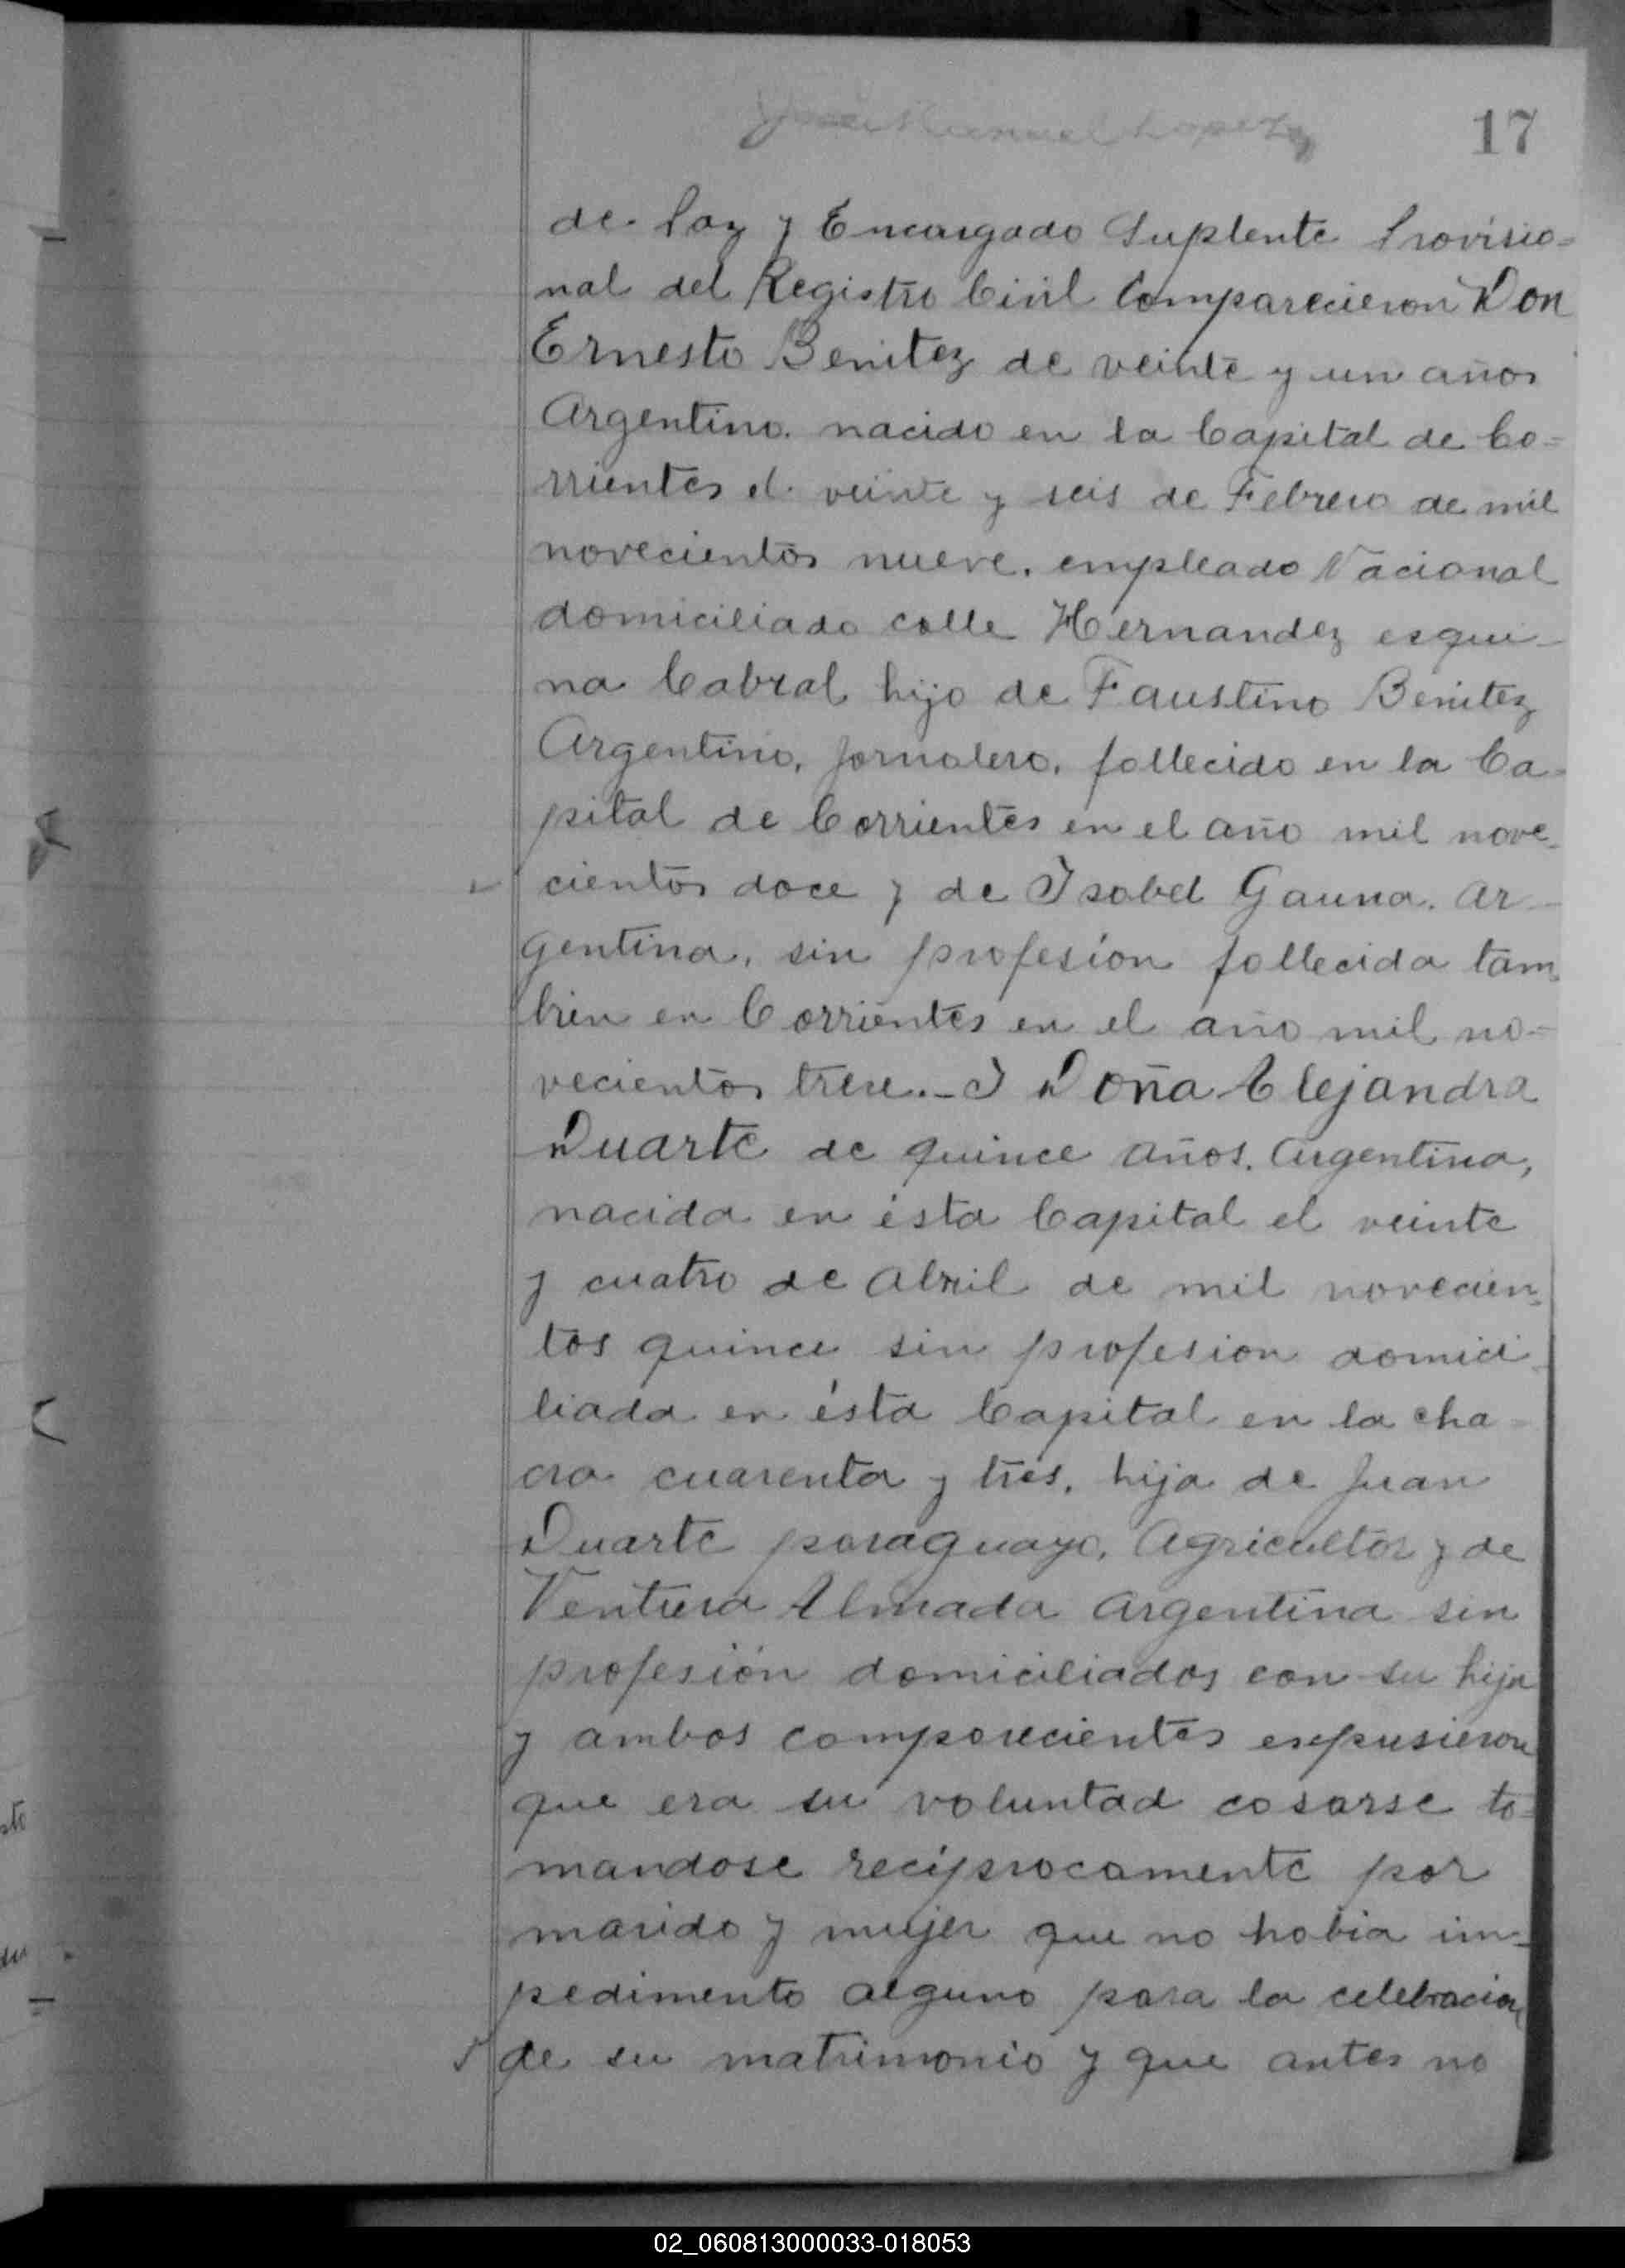 Jose Manuel Lopez
17
de Paz y Encargado Suplente Provisio=
nal del Registro Civil Comparecieron Don
Ernesto Benitez de veinte y un años
Argentino. nacido en la Capital de Co=
rrientes el veinte y seis de Febrero de mil
novecientos nueve. empleado Nacional
domiciliado calle Hernandez esqui-
na Cabral hijo de Faustino Benitez
Argentino, Jornalero, fallecido en la Ca-
pital de Corrientes en el año mil nove-
cientos doce y de Isabel Gauna. Ar-
gentina, sin profesión fallecida tam-
bien en Corrientes en el año mil no=
vecientos trece._ I Doña Alejandra
Duarte de quince años. argentina,
nacida en ésta Capital el veinte
y cuatro de abril de mil novecien-
tos quince sin profesion domici-
liada en ésta Capital en la cha-
cra cuarenta y tres, hija de Juan
Duarte paraguayo, Agricultor y de
Ventura Almada argentina sin
profesión domiciliados con su hija
y ambos comparecientes expusieron
que era su voluntad casarse to-
mandose recíprocamente por
marido y mujer que no habia im-
pedimento alguno para la celebracion
de su matrimonio y que antes no
02_060813000033-018053